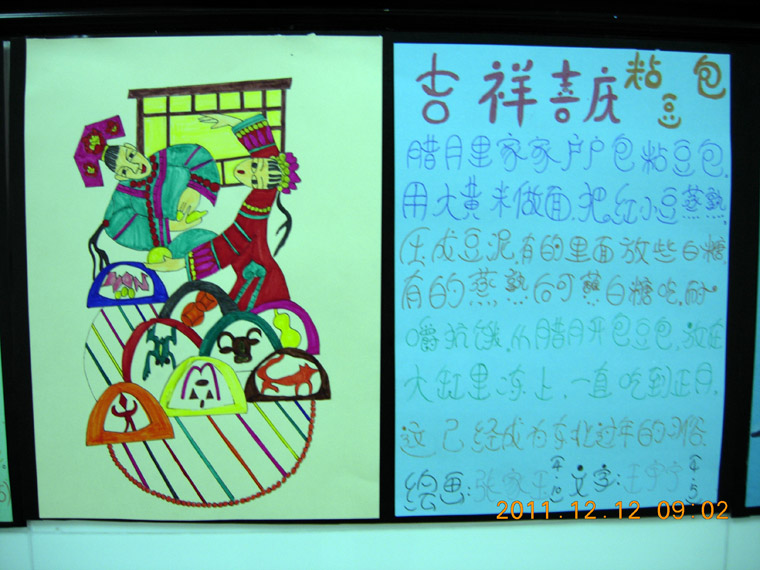 吉祥喜庆粘豆包
腊月里家家户户包粘豆包.
用大黄米做面.把红小豆蒸熟,
压成豆泥有的里面放些白糖,
有的蒸熟后可蘸白糖吃.耐
嚼抗饿从腊月开包豆包,放在
大缸里冻上,一直吃到正月.
这已经成为东北过年的习俗.
绘画:张家 文字:王宇宁
2011.12.12 09:02